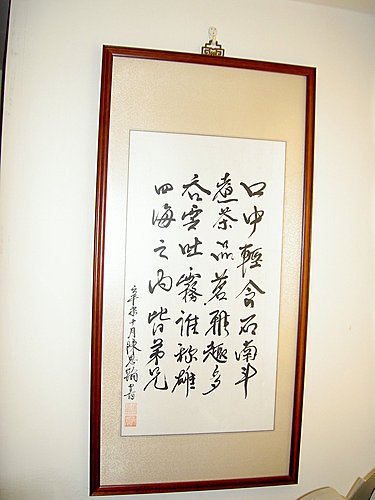 口中輕含石南斗
煮茶品茗雅趣多
吞雲吐霧誰稱雄
四海之內皆弟兄
辛未十月陳思翰書